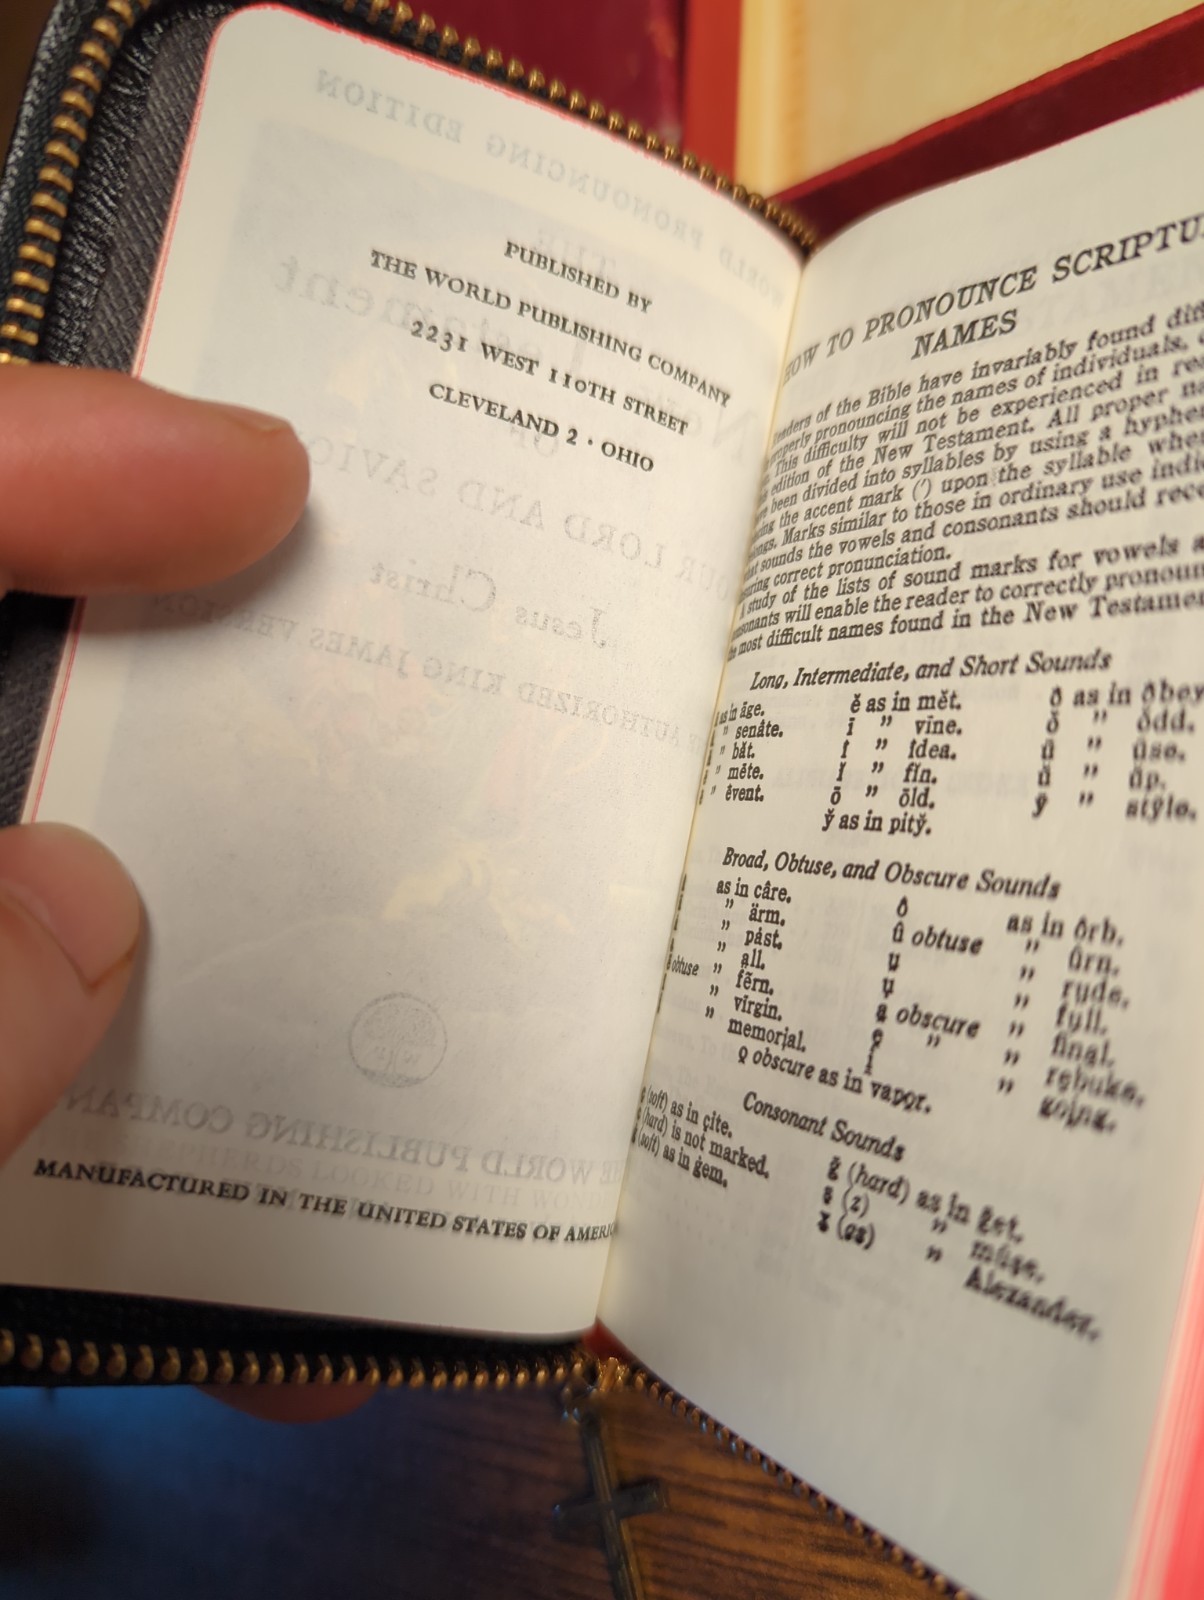 PUBLISHED BY
THE WORLD PUBLISHING COMPANY
2231 WEST 110TH STREET
CLEVELAND 2 · OHIO
MANUFACTURED IN THE UNITED STATES OF AMERIC
HOW TO PRONOUNCE SCRIPTU
NAMES
of the Bible have invariably found
properly pronouncing the names of individuals,
This difficulty will not be experienced in
edition of the New Testament. All proper
been divided into syllables by using a
the accent mark (′) upon the syllable
Marks similar to those in ordinary use
sounds the vowels and consonants should
correct pronunciation.
study of the lists of sound marks for vowels
will enable the reader to correctly
most difficult names found in the New
Long, Intermediate, and Short Sounds
as in āge. ĕ as in mĕt. ȯ as in ȯbey
" senâte. ī " vīne. ŏ " ŏdd.
" băt. î " îdea. ū " ūse.
" mēte. ĭ " fĭn. ŭ " ŭp.
" êvent. ō " ōld. ȳ " stȳle.
y̆ as in pity̆.
Broad, Obtuse, and Obscure Sounds
as in câre. ô as in ôrb.
" ärm. û obtuse " ûrn.
" pȧst. ṳ " rṳde.
" a̤ll. ụ " fụll.
obtuse " fẽrn. a̱ obscure " fina̱l.
" vĩrgin. e̱ " " re̱buke.
" memori̱al. i̱ " goi̱ng.
o̱ obscure as in vapo̱r.
Consonant Sounds
(soft) as in çite. ḡ (hard) as in ḡet.
(hard) is not marked. ş (z) " mūşe.
(soft) as in ġem. x̱ (gs) " Alex̱ander.